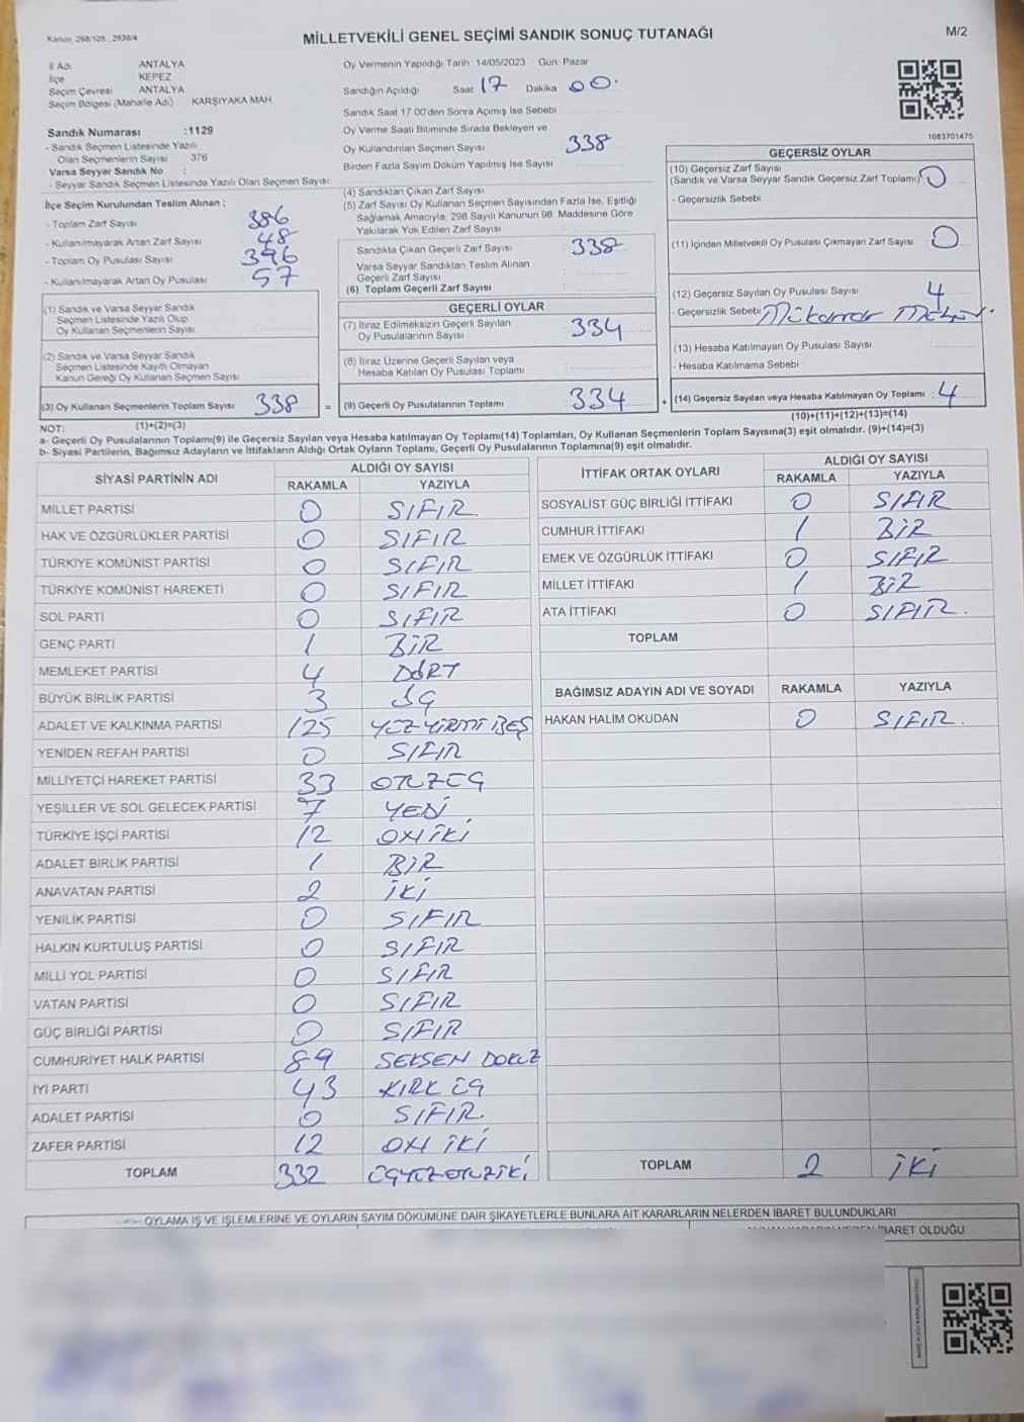 Kanun: 298/108 , 2839/4
MİLLETVEKİLİ GENEL SEÇİMİ SANDIK SONUÇ TUTANAĞI
M/2
İl Adı ANTALYA
İlçe KEPEZ
Seçim Çevresi ANTALYA
Seçim Bölgesi (Mahalle Adı) KARŞIYAKA MAH
Sandık Numarası :1129
- Sandık Seçmen Listesinde Yazılı
Olan Seçmenlerin Sayısı 376
Varsa Seyyar Sandık No :
- Seyyar Sandık Seçmen Listesinde Yazılı Olan Seçmen Sayısı:
İlçe Seçim Kurulundan Teslim Alınan ;
- Toplam Zarf Sayısı 386
- Kullanılmayarak Artan Zarf Sayısı 48
- Toplam Oy Pusulası Sayısı 396
- Kullanılmayarak Artan Oy Pusulası 57
(1) Sandık ve Varsa Seyyar Sandık
Seçmen Listesinde Yazılı Olup
Oy Kullanan Seçmenlerin Sayısı
(2) Sandık ve Varsa Seyyar Sandık
Seçmen Listesinde Kayıtlı Olmayan
Kanun Gereği Oy Kullanan Seçmen Sayısı
(3) Oy Kullanan Seçmenlerin Toplam Sayısı 338 =
(1)+(2)=(3)
Oy Vermenin Yapıldığı Tarih: 14/05/2023 Gün: Pazar
Sandığın Açıldığı Saat 17 Dakika 00.
Sandık Saat 17.00'den Sonra Açılmış İse Sebebi
Oy Verme Saati Bitiminde Sırada Bekleyen ve
Oy Kullandırılan Seçmen Sayısı 338
Birden Fazla Sayım Döküm Yapılmış İse Sayısı
(4) Sandıktan Çıkan Zarf Sayısı
(5) Zarf Sayısı Oy Kullanan Seçmen Sayısından Fazla İse, Eşitliği
Sağlamak Amacıyla, 298 Sayılı Kanunun 98. Maddesine Göre
Yakılarak Yok Edilen Zarf Sayısı
Sandıkta Çıkan Geçerli Zarf Sayısı 338
Varsa Seyyar Sandıktan Teslim Alınan
Geçerli Zarf Sayısı
(6) Toplam Geçerli Zarf Sayısı
GEÇERLİ OYLAR
(7) İtiraz Edilmeksizin Geçerli Sayılan
Oy Pusulalarının Sayısı 334
(8) İtiraz Üzerine Geçerli Sayılan veya
Hesaba Katılan Oy Pusulası Toplamı
(9) Geçerli Oy Pusulalarının Toplamı 334 +
1083701475
GEÇERSİZ OYLAR
(10) Geçersiz Zarf Sayısı
(Sandık ve Varsa Seyyar Sandık Geçersiz Zarf Toplamı) 0
- Geçersizlik Sebebi
(11) İçinden Milletvekili Oy Pusulası Çıkmayan Zarf Sayısı 0
(12) Geçersiz Sayılan Oy Pusulası Sayısı 4
- Geçersizlik Sebebi Mükerrer
(13) Hesaba Katılmayan Oy Pusulası Sayısı
- Hesaba Katılmama Sebebi
(14) Geçersiz Sayılan veya Hesaba Katılmayan Oy Toplamı : 4
(10)+(11)+(12)+(13)=(14)
NOT:
a- Geçerli Oy Pusulalarının Toplamı(9) ile Geçersiz Sayılan veya Hesaba katılmayan Oy Toplamı(14) Toplamları, Oy Kullanan Seçmenlerin Toplam Sayısına(3) eşit olmalıdır. (9)+(14)=(3)
b- Siyasi Partilerin, Bağımsız Adayların ve İttifakların Aldığı Ortak Oyların Toplamı, Geçerli Oy Pusulalarının Toplamına(9) eşit olmalıdır.
SİYASİ PARTİNİN ADI ALDIĞI OY SAYISI
RAKAMLA YAZIYLA
MİLLET PARTİSİ 0 SIFIR
HAK VE ÖZGÜRLÜKLER PARTİSİ 0 SIFIR
TÜRKİYE KOMÜNİST PARTİSİ 0 SIFIR
TÜRKİYE KOMÜNİST HAREKETİ 0 SIFIR
SOL PARTİ 0 SIFIR
GENÇ PARTİ 1 BİR
MEMLEKET PARTİSİ 4 DÖRT
BÜYÜK BİRLİK PARTİSİ 3 ÜÇ
ADALET VE KALKINMA PARTİSİ 125 YÜZ YİRMİ BEŞ
YENİDEN REFAH PARTİSİ 0 SIFIR
MİLLİYETÇİ HAREKET PARTİSİ 33 OTUZÜÇ
YEŞİLLER VE SOL GELECEK PARTİSİ 7 YEDİ
TÜRKİYE İŞÇİ PARTİSİ 12 ON İKİ
ADALET BİRLİK PARTİSİ 1 BİR
ANAVATAN PARTİSİ 2 İKİ
YENİLİK PARTİSİ 0 SIFIR
HALKIN KURTULUŞ PARTİSİ 0 SIFIR
MİLLİ YOL PARTİSİ 0 SIFIR
VATAN PARTİSİ 0 SIFIR
GÜÇ BİRLİĞİ PARTİSİ 0 SIFIR
CUMHURİYET HALK PARTİSİ 89 SEKSEN DOKUZ
İYİ PARTİ 43 KIRK ÜÇ
ADALET PARTİSİ 0 SIFIR.
ZAFER PARTİSİ 12 ON İKİ
TOPLAM 332 ÜÇYÜZOTUZİKİ
İTTİFAK ORTAK OYLARI ALDIĞI OY SAYISI
RAKAMLA YAZIYLA
SOSYALİST GÜÇ BİRLİĞİ İTTİFAKI 0 SIFIR
CUMHUR İTTİFAKI 1 BİR
EMEK VE ÖZGÜRLÜK İTTİFAKI 0 SIFIR
MİLLET İTTİFAKI 1 BİR
ATA İTTİFAKI 0 SIFIR.
TOPLAM
BAĞIMSIZ ADAYIN ADI VE SOYADI RAKAMLA YAZIYLA
HAKAN HALİM OKUDAN 0 SIFIR.
TOPLAM 2 İKİ
OYLAMA İŞ VE İŞLEMLERİNE VE OYLARIN SAYIM DÖKÜMÜNE DAİR ŞİKAYETLERLE BUNLARA AİT KARARLARIN NELERDEN İBARET BULUNDUKLARI
İBARET OLDUĞU